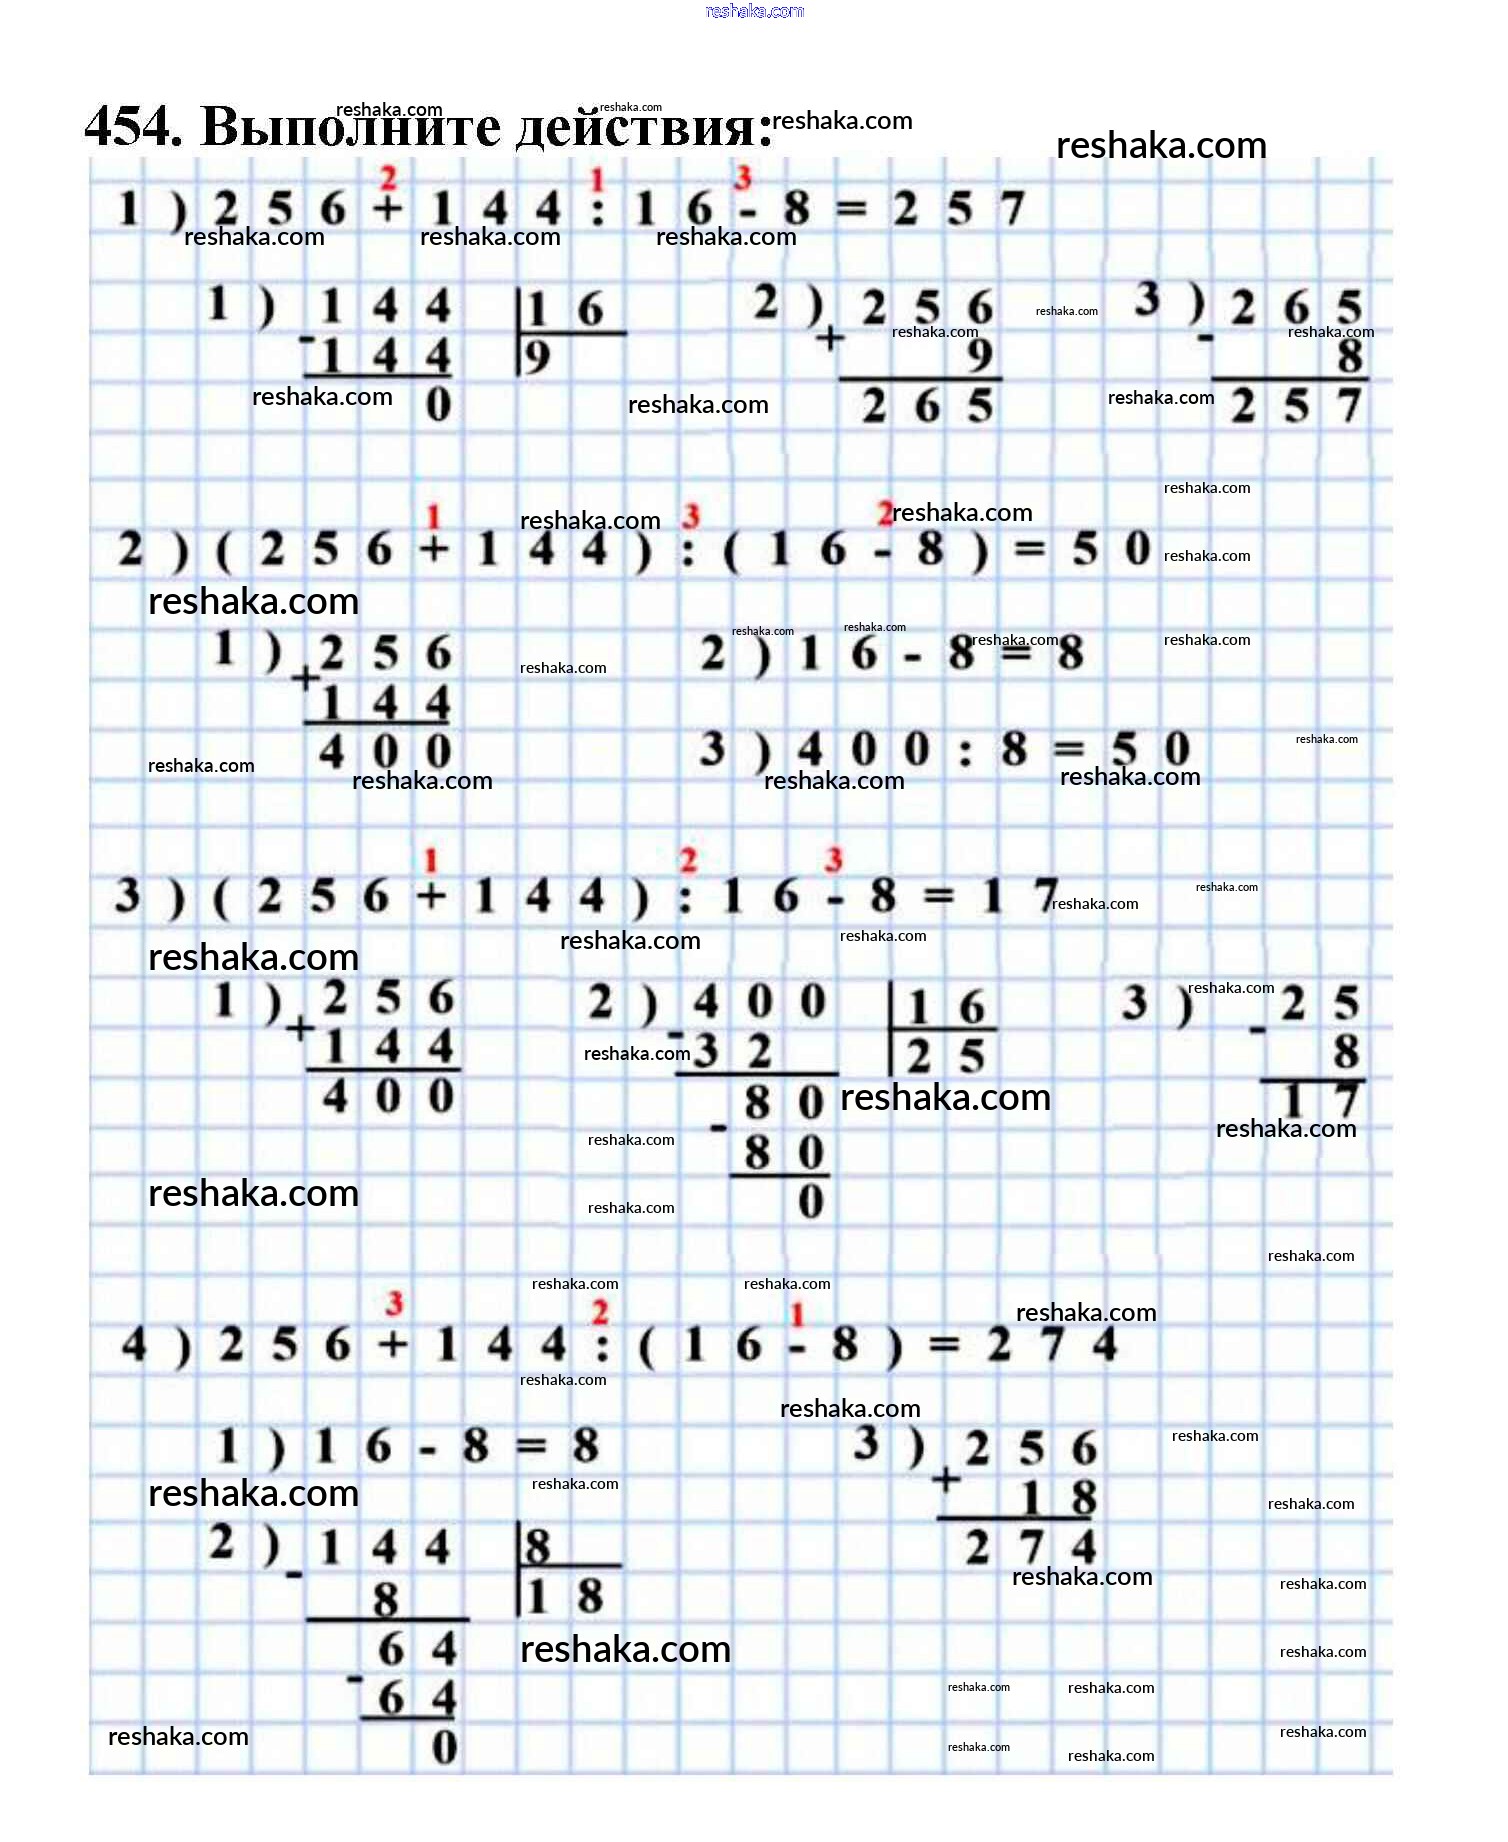 reshaka.com
454. Выполните действия:
reshaka.com reshaka.com reshaka.com reshaka.com
2 1 3
1) 256 + 144 : 16 - 8 = 257
reshaka.com reshaka.com reshaka.com
1) 144 16 2) 256 reshaka.com 3) 265
- 144 9 + 9 reshaka.com - 8 reshaka.com
reshaka.com 0 reshaka.com 265 reshaka.com 257
reshaka.com
1 reshaka.com 3 2 reshaka.com
2) (256 + 144) : (16 - 8) = 50 reshaka.com
reshaka.com
reshaka.com reshaka.com reshaka.com reshaka.com
1) 256 reshaka.com 2) 16 - 8 = 8
+ 144
400 3) 400 : 8 = 50 reshaka.com
reshaka.com reshaka.com reshaka.com reshaka.com
1 2 3
3) (256 + 144) : 16 - 8 = 17 reshaka.com reshaka.com
reshaka.com reshaka.com reshaka.com
1) 256 2) 400 16 3) reshaka.com 25
+ 144 reshaka.com - 32 25 - 8
400 80 reshaka.com 17
reshaka.com - 80 reshaka.com
reshaka.com reshaka.com 0
reshaka.com
reshaka.com reshaka.com
3 2 1 reshaka.com
4) 256 + 144 : (16 - 8) = 274
reshaka.com
reshaka.com
1) 16 - 8 = 8 3) 256 reshaka.com
reshaka.com reshaka.com + 18 reshaka.com
2) 144 8 274
- 8 18 reshaka.com reshaka.com
64 reshaka.com reshaka.com
- 64 reshaka.com reshaka.com
reshaka.com 0 reshaka.com reshaka.com reshaka.com